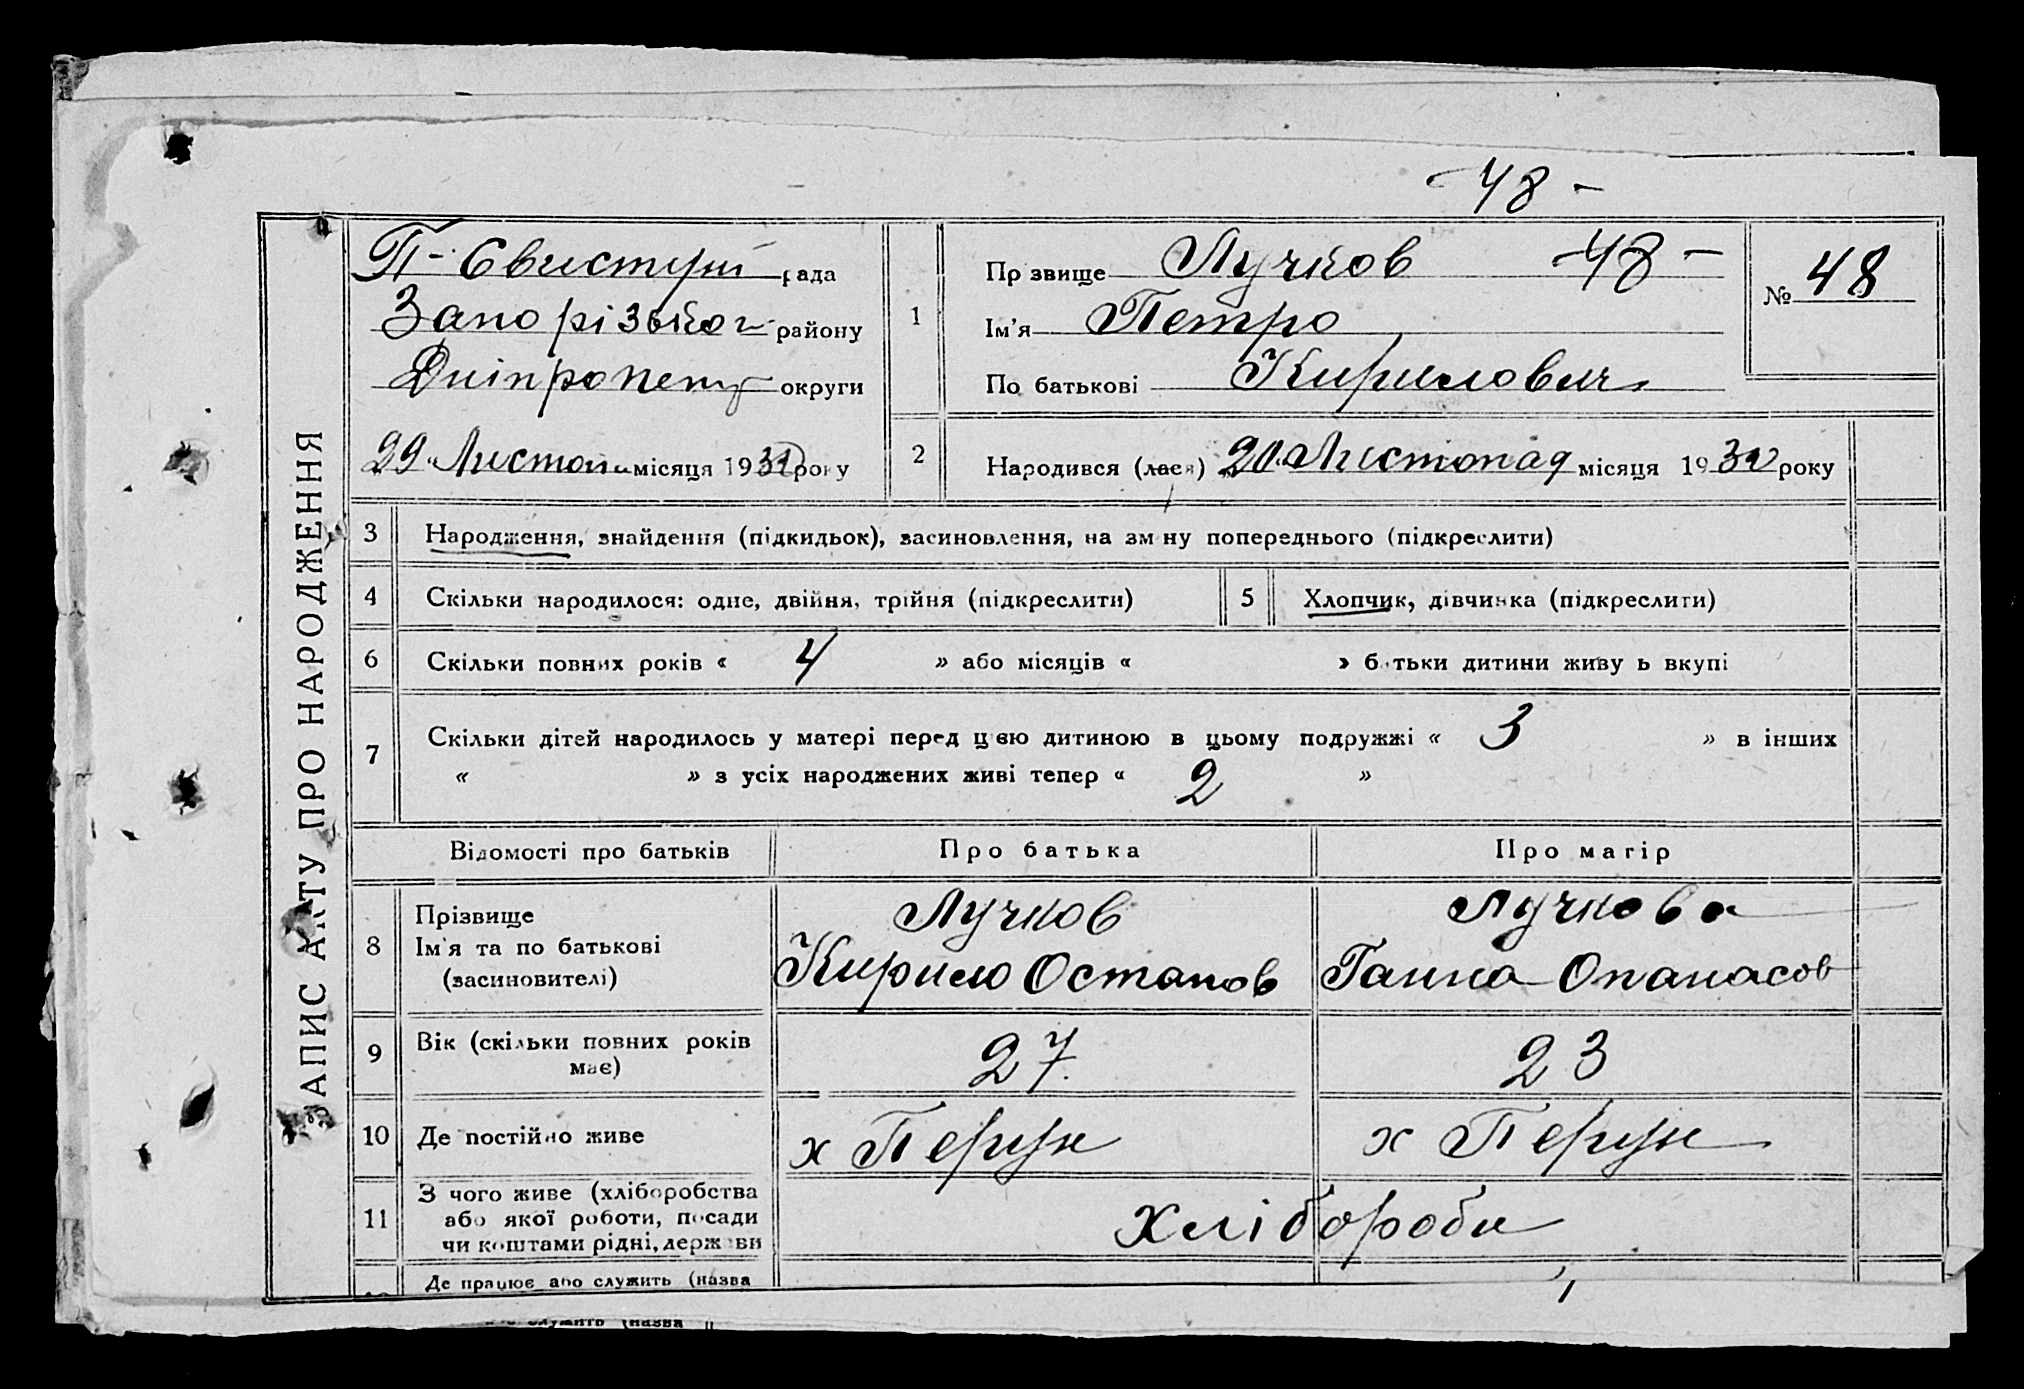 - 48 -
ЗАПИС АКТУ ПРО НАРОДЖЕННЯ
П-Свистун рада
Запорізьког району
Дніпропет округи
29 Листопа місяця 1932 року
1
Пр звище Лучков - 48 -
Ім'я Петро
По батькові Кирилович
№ 48
2
Народився (лася) 20 Листопад місяця 1932 року
3 Народження, знайдення (підкидьок), засиновлення, на зм ну попереднього (підкреслити)
4 Скільки народилося: одне, двійня, трійня (підкреслити) 5 Хлопчик, дівчинка (підкреслити)
6 Скільки повних років « 4 » або місяців « » батьки дитини живу ь вкупі
7 Скільки дітей народилось у матері перед цією дитиною в цьому подружжі « 3 » в інших
« » з усіх народжених живі тепер « 2 »
Відомості про батьків Про батька Про матір
8 Прізвище Лучков Лучкова
Ім'я та по батькові Кирило Остапов Ганна Опанасов
(засиновителі)
9 Вік (скільки повних років має) 27. 23
10 Де постійно живе х Перун х Перун
11 З чого живе (хліборобства
або якої роботи, посади
чи коштами рідні, держави
хлібороби
Де працює або служить (назва
служить (назва